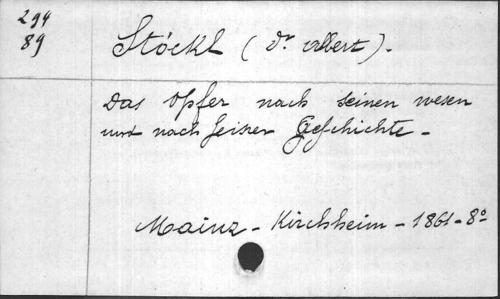 294
89
Stöckl (Dr Albert).
Das Opfer nach seinen wesen
und nach seiner Geschichte -
Mainz - Kirchheim - 1861 - 8º